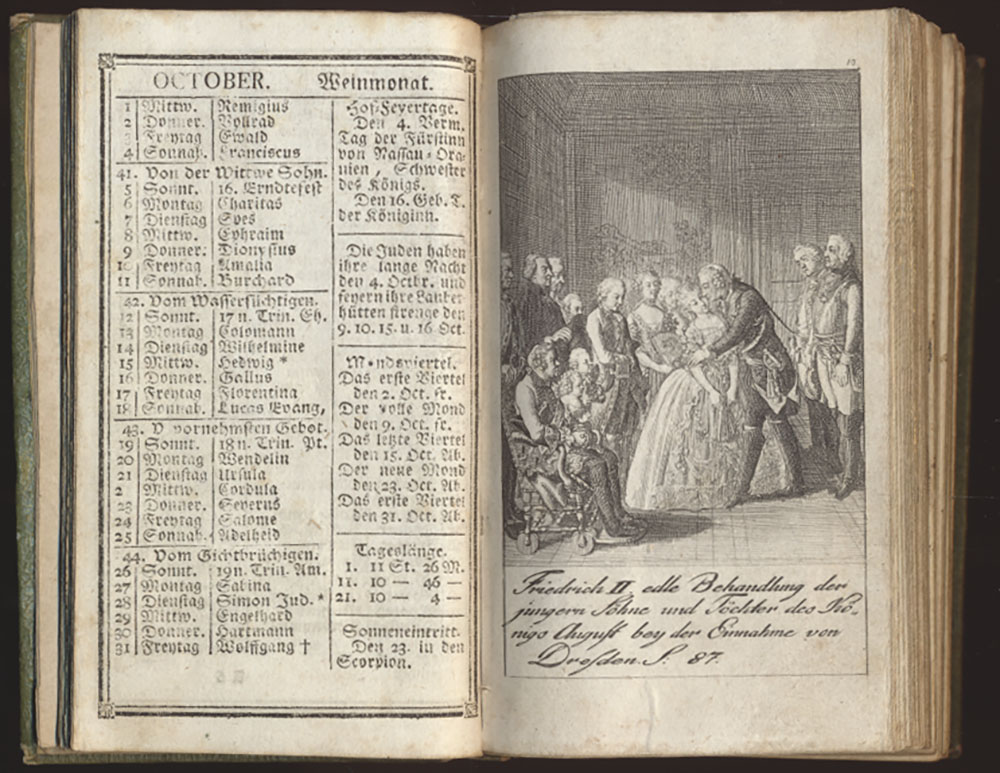 OCTOBER. Weinmonat.
1 Mittw. Remigius
2 Donner. Vollrad
Freytag Ewald
4 Sonnab. Franciscus
41. Von der Wittwe Sohn.
5 Sonnt. 16. Erndtefest
6 Montag Charitas
7 Dienstag Spes
8 Mittw. Ephraim
9 Donner. Dionysius
10 Freytag Amalia
11 Sonnab. Burchard
42. Vom Wassersüchtigen.
12 Sonnt. 17 n. Trin. Eh.
13 Montag Colomann
14 Dienstag Wilhelmine
15 Mittw. Hedwig *
16 Donner. Gallus
17 Freytag Florentina
18 Sonnab. Lucas Evang,
43. V vornehmsten Gebot.
19 Sonnt. 18 n. Trin. Pt.
20 Montag Wendelin
21 Dienstag Ursula
2 Mittw. Cordula
23 Donner. Severus
24 Freytag Salome
25 Sonnab. Adelheid
44. Vom Gichtbrüchigen.
26 Sonnt. 19 n. Trin. Am.
27 Montag Sabina
28 Dienstag Simon Jud. *
29 Mittw. Engelhard
30 Donner. Hartmann
31 Freytag Wolffgang †
Hof-Feyertage.
Den 4. Verm.
Tag der Fürstinn
von Nassau-Ora-
nien, Schwester
des Königs.
Den 16. Geb. T.
der Königinn.
Die Juden haben
ihre lange Nacht
den 4. Octbr. und
feyern ihre Lauber-
hütten strenge den
9. 10. 15. u. 16 Oct.
Mondsviertel.
Das erste Viertel
den 2. Oct. fr.
Der volle Mond
den 9. Oct. fr.
Das letzte Viertel
den 15. Oct. Ab.
Der neue Mond
den 23. Oct. Ab.
Das erste Viertel
den 31. Oct. Ab.
Tageslänge.
1. 11 St. 26 M.
11. 10 — 46 —
21. 10 — 4 —
Sonneneintritt.
Den 23. in den
Scorpion.
Friedrich II edle Behandlung der
jungern Söhne und Töchter des Kö-
nigs August bey der Einnahme von
Dresden. S. 87.